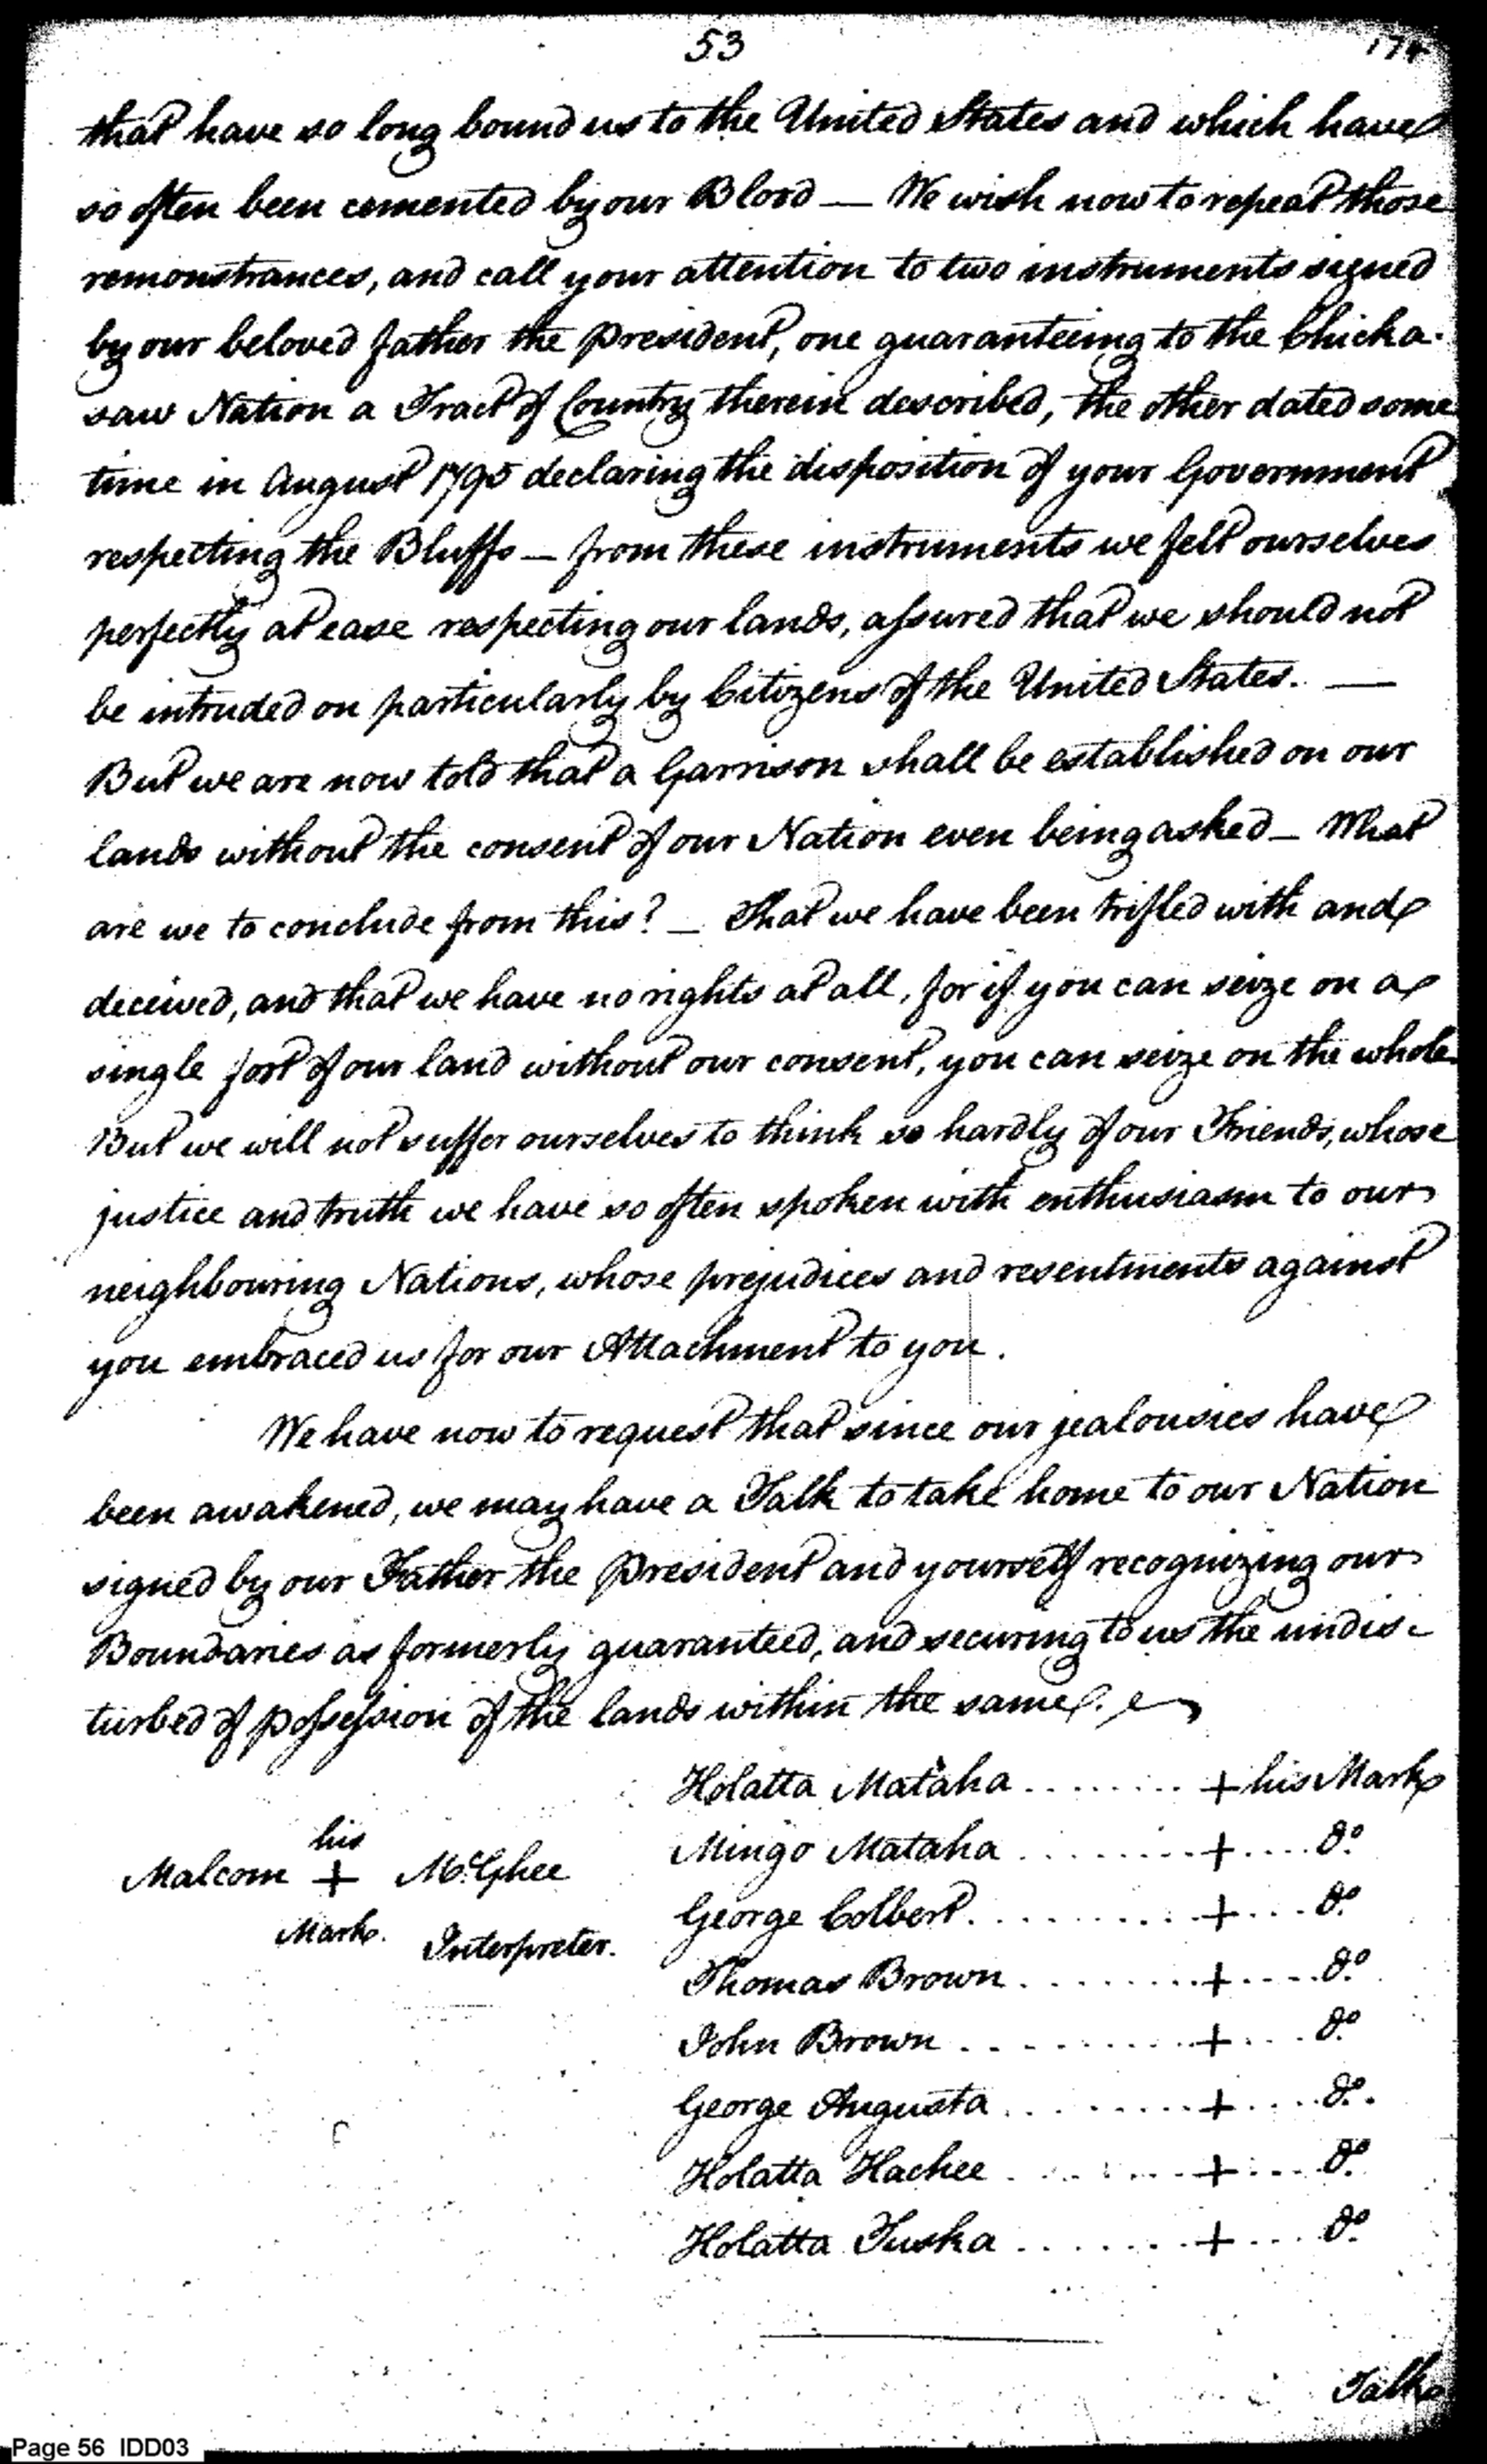 53
174
that have so long bound us to the United States and which have
so often been cemented by our Blood — We wish now to repeat those
remonstrances, and call your attention to two instruments signed
by our beloved father the President, one guaranteeing to the Chicka-
saw Nation a Tract of Country therein described, the other dated some
time in August 1795 declaring the disposition of your Government
respecting the Bluffs — from these instruments we felt ourselves
perfectly at ease respecting our lands, assured that we should not
be intruded on particularly by Citizens of the United States. —
But we are now told that a Garrison shall be established on our
lands without the consent of our Nation even being asked — What
are we to conclude from this? — That we have been trifled with and
deceived, and that we have no rights at all, for if you can seize on a
single foot of our land without our consent, you can seize on the whole
But we will not suffer ourselves to think so hardly of our Friends, whose
justice and truth we have so often spoken with enthusiasm to our
neighbouring Nations, whose prejudices and resentments against
you embraced us for our Attachment to you.
We have now to request that since our jealousies have
been awakened, we may have a Talk to take home to our Nation
signed by our Father the President and yourself recognizing our
Boundaries as formerly guaranteed, and securing to us the undis-
turbed of possession of the lands within the same.
Holatta Mataha ........ + his Mark
Mingo Mataha ........ + .... do.
George Colbert ........ + .... do.
Thomas Brown ........ + .... do.
John Brown ........ + .... do.
George Augusta ........ + .... do.
Holatta Hachee ........ + .... do.
Holatta Tuska ........ + .... do.
his
Malcom + McGhee
Mark. Interpreter.
Talk
Page 56 IDD03